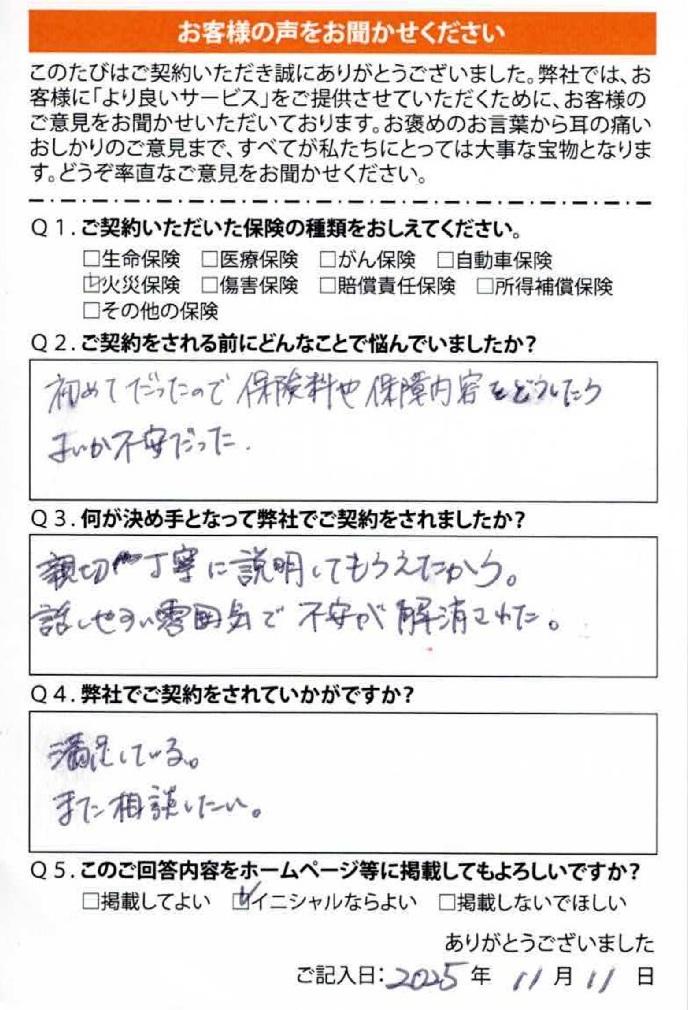 お客様の声をお聞かせください
このたびはご契約いただき誠にありがとうございました。弊社では、お
客様に「より良いサービス」をご提供させていただくために、お客様の
ご意見をお聞かせいただいております。お褒めのお言葉から耳の痛い
おしかりのご意見まで、すべてが私たちにとっては大事な宝物となりま
す。どうぞ率直なご意見をお聞かせください。
Q1.ご契約いただいた保険の種類をおしえてください。
□生命保険 □医療保険 □がん保険 □自動車保険
☑火災保険 □傷害保険 □賠償責任保険 □所得補償保険
□その他の保険
Q2.ご契約をされる前にどんなことで悩んでいましたか?
初めてだったので保険料や保障内容をどうしたら
よいか不安だった.
Q3.何が決め手となって弊社でご契約をされましたか?
親切丁寧に説明してもらえたから。
話しやすい雰囲気で不安が解消された。
Q4.弊社でご契約をされていかがですか?
満足している。
また相談したい。
Q5.このご回答内容をホームページ等に掲載してもよろしいですか?
□掲載してよい ☑イニシャルならよい □掲載しないでほしい
ありがとうございました
ご記入日:2025年 11月11日